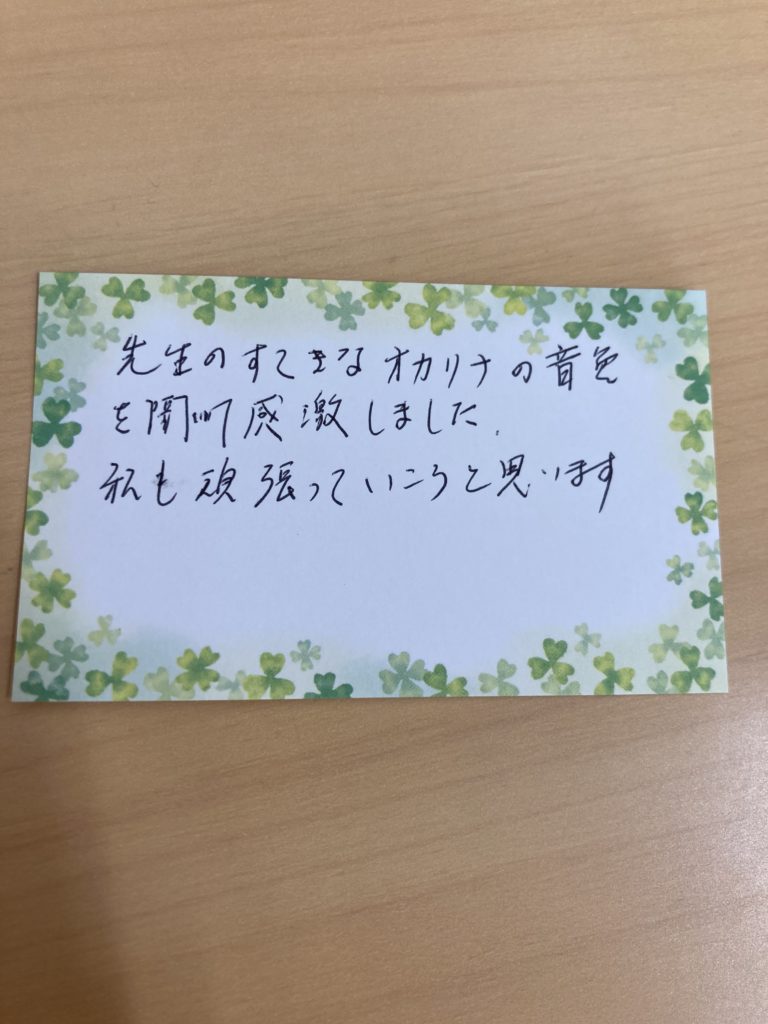 先生のすてきなオカリナの音色
を聞いて感激しました.
私も頑張っていこうと思います